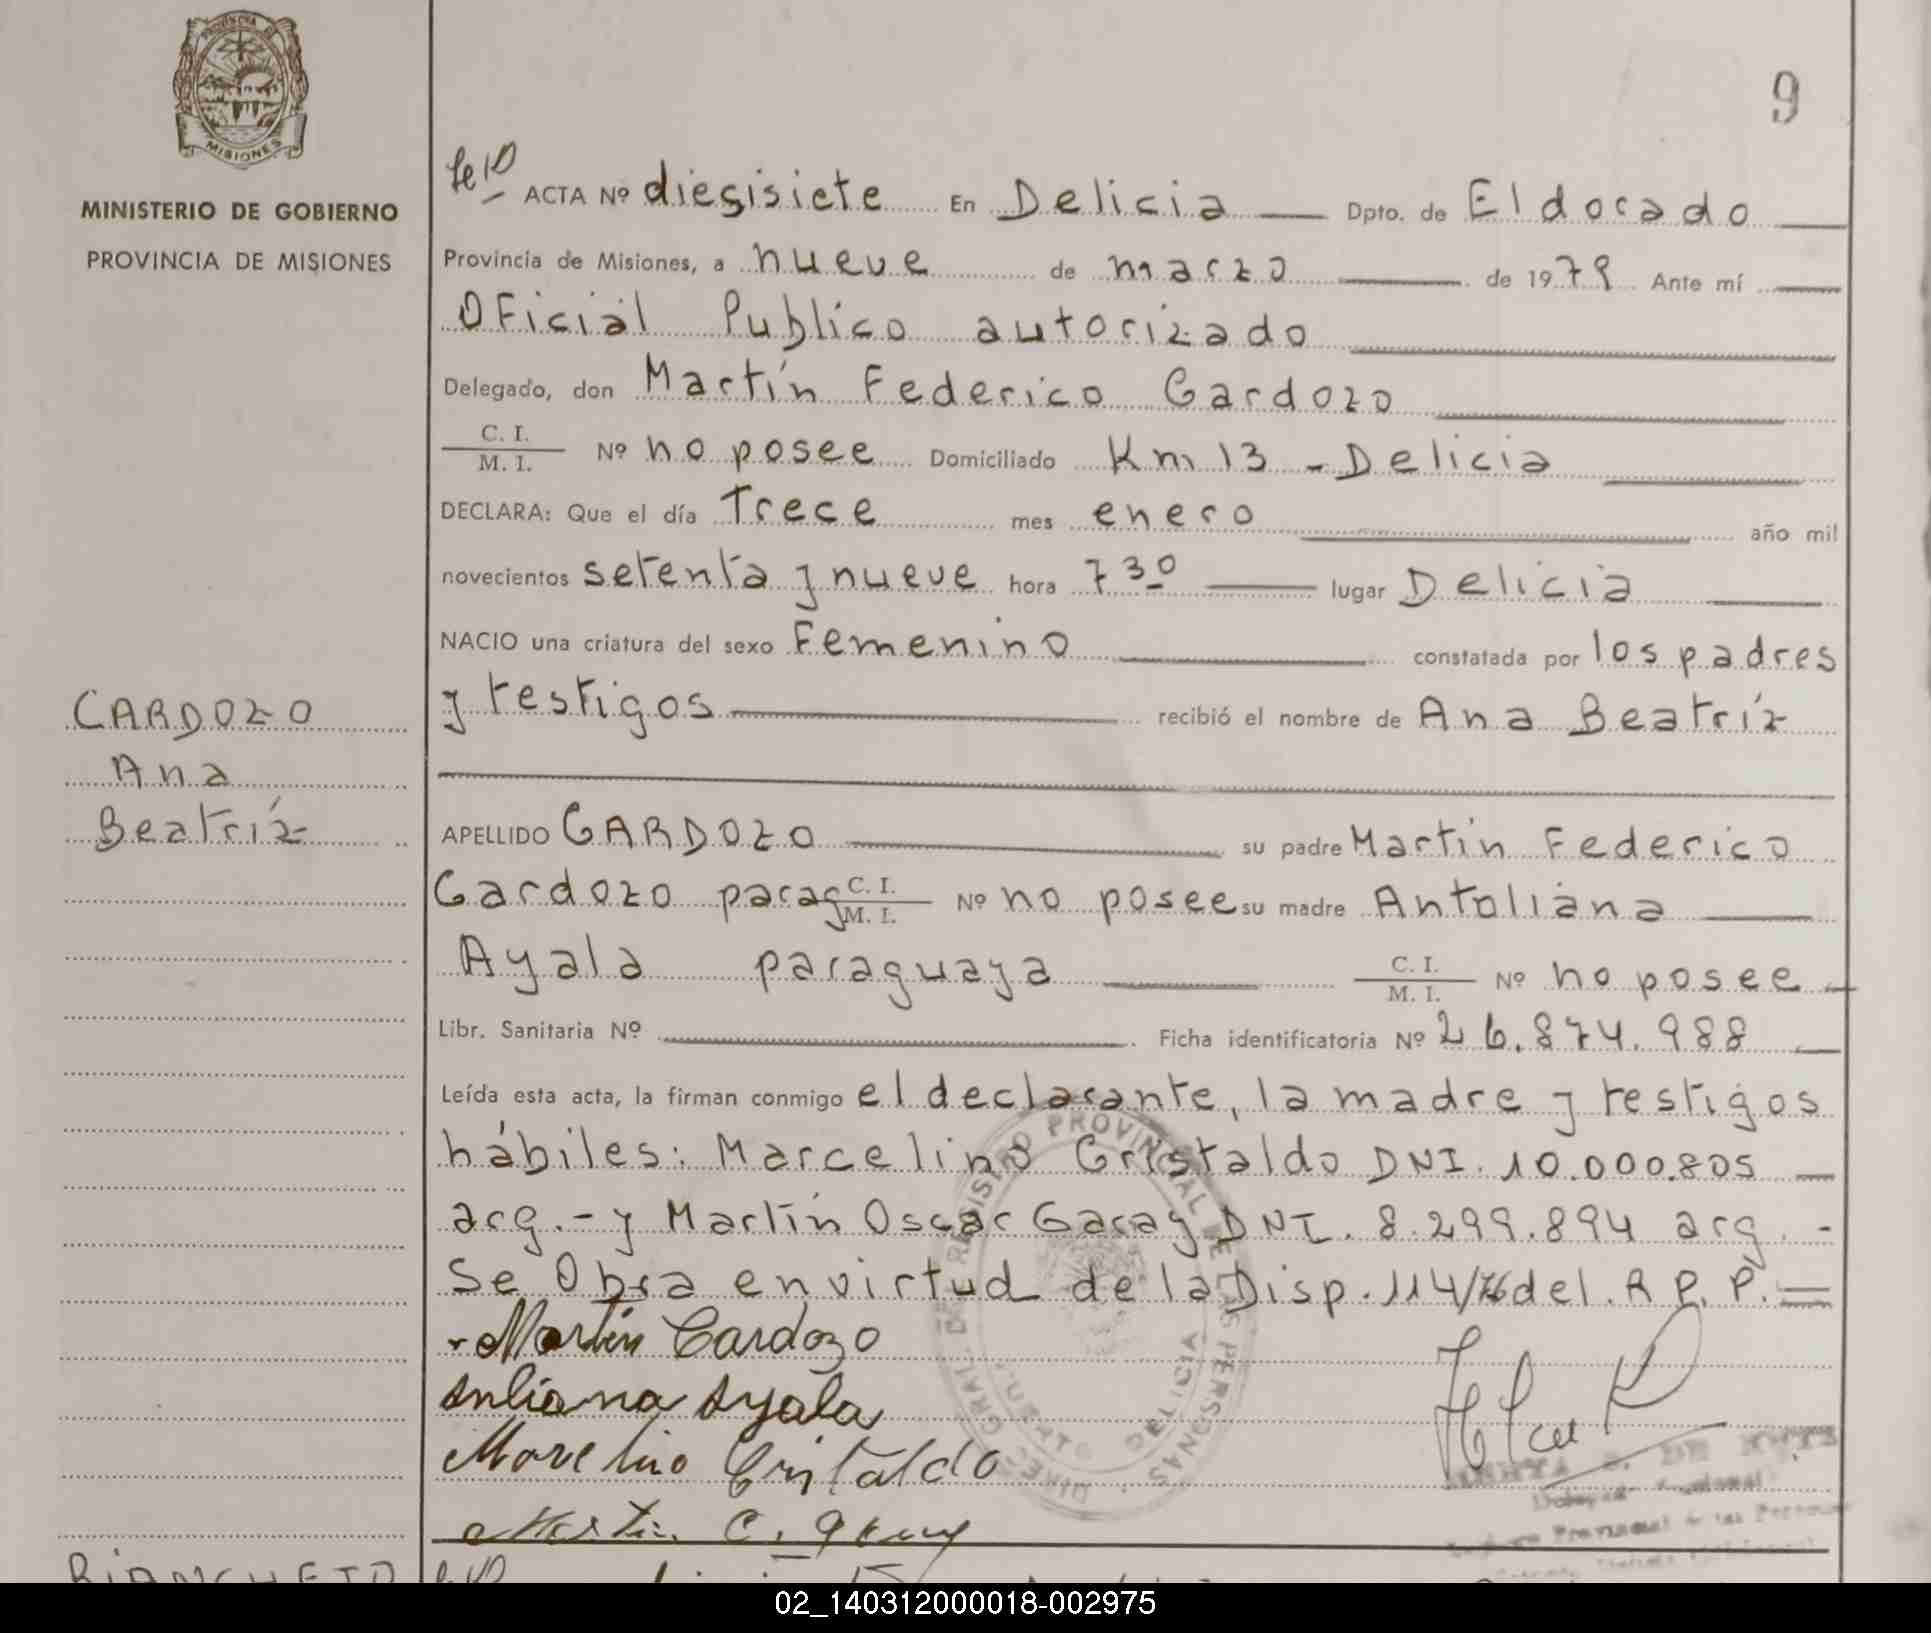 PROVINCIA DE
MISIONES
MINISTERIO DE GOBIERNO
PROVINCIA DE MISIONES
9
ACTA Nº diesisiete En Delicia Dpto. de Eldorado
Provincia de Misiones, a nueve de marzo de 1979 Ante mí
Oficial Publico autorizado
Delegado, don Martín Federico Cardozo
C. I.
M. I. Nº no posee Domiciliado Km 13 - Delicia
DECLARA: Que el día Trece mes enero año mil
novecientos setenta y nueve hora 7 30 lugar Delicia
NACIO una criatura del sexo Femenino constatada por los padres
y testigos recibió el nombre de Ana Beatríz
CARDOZO
Ana
Beatríz
APELLIDO CARDOZO su padre Martín Federico
Cardozo parag C. I.
M. I. Nº no posee su madre Antoliana
Ayala paraguaya C. I.
M. I. Nº no posee
Libr. Sanitaria Nº Ficha identificatoria Nº 26.874.988
Leída esta acta, la firman conmigo el declarante, la madre y testigos
hábiles: Marcelino Cristaldo DNI. 10.000.805
arg.- y Martín Oscar Garay DNI. 8.299.894 arg.-
Se Obra en virtud de la Disp. 114/76 del. R. P. P.
Martín Cardozo
Ayala
Marcelino Cristaldo
Martin
DELICIA
02_140312000018-002975